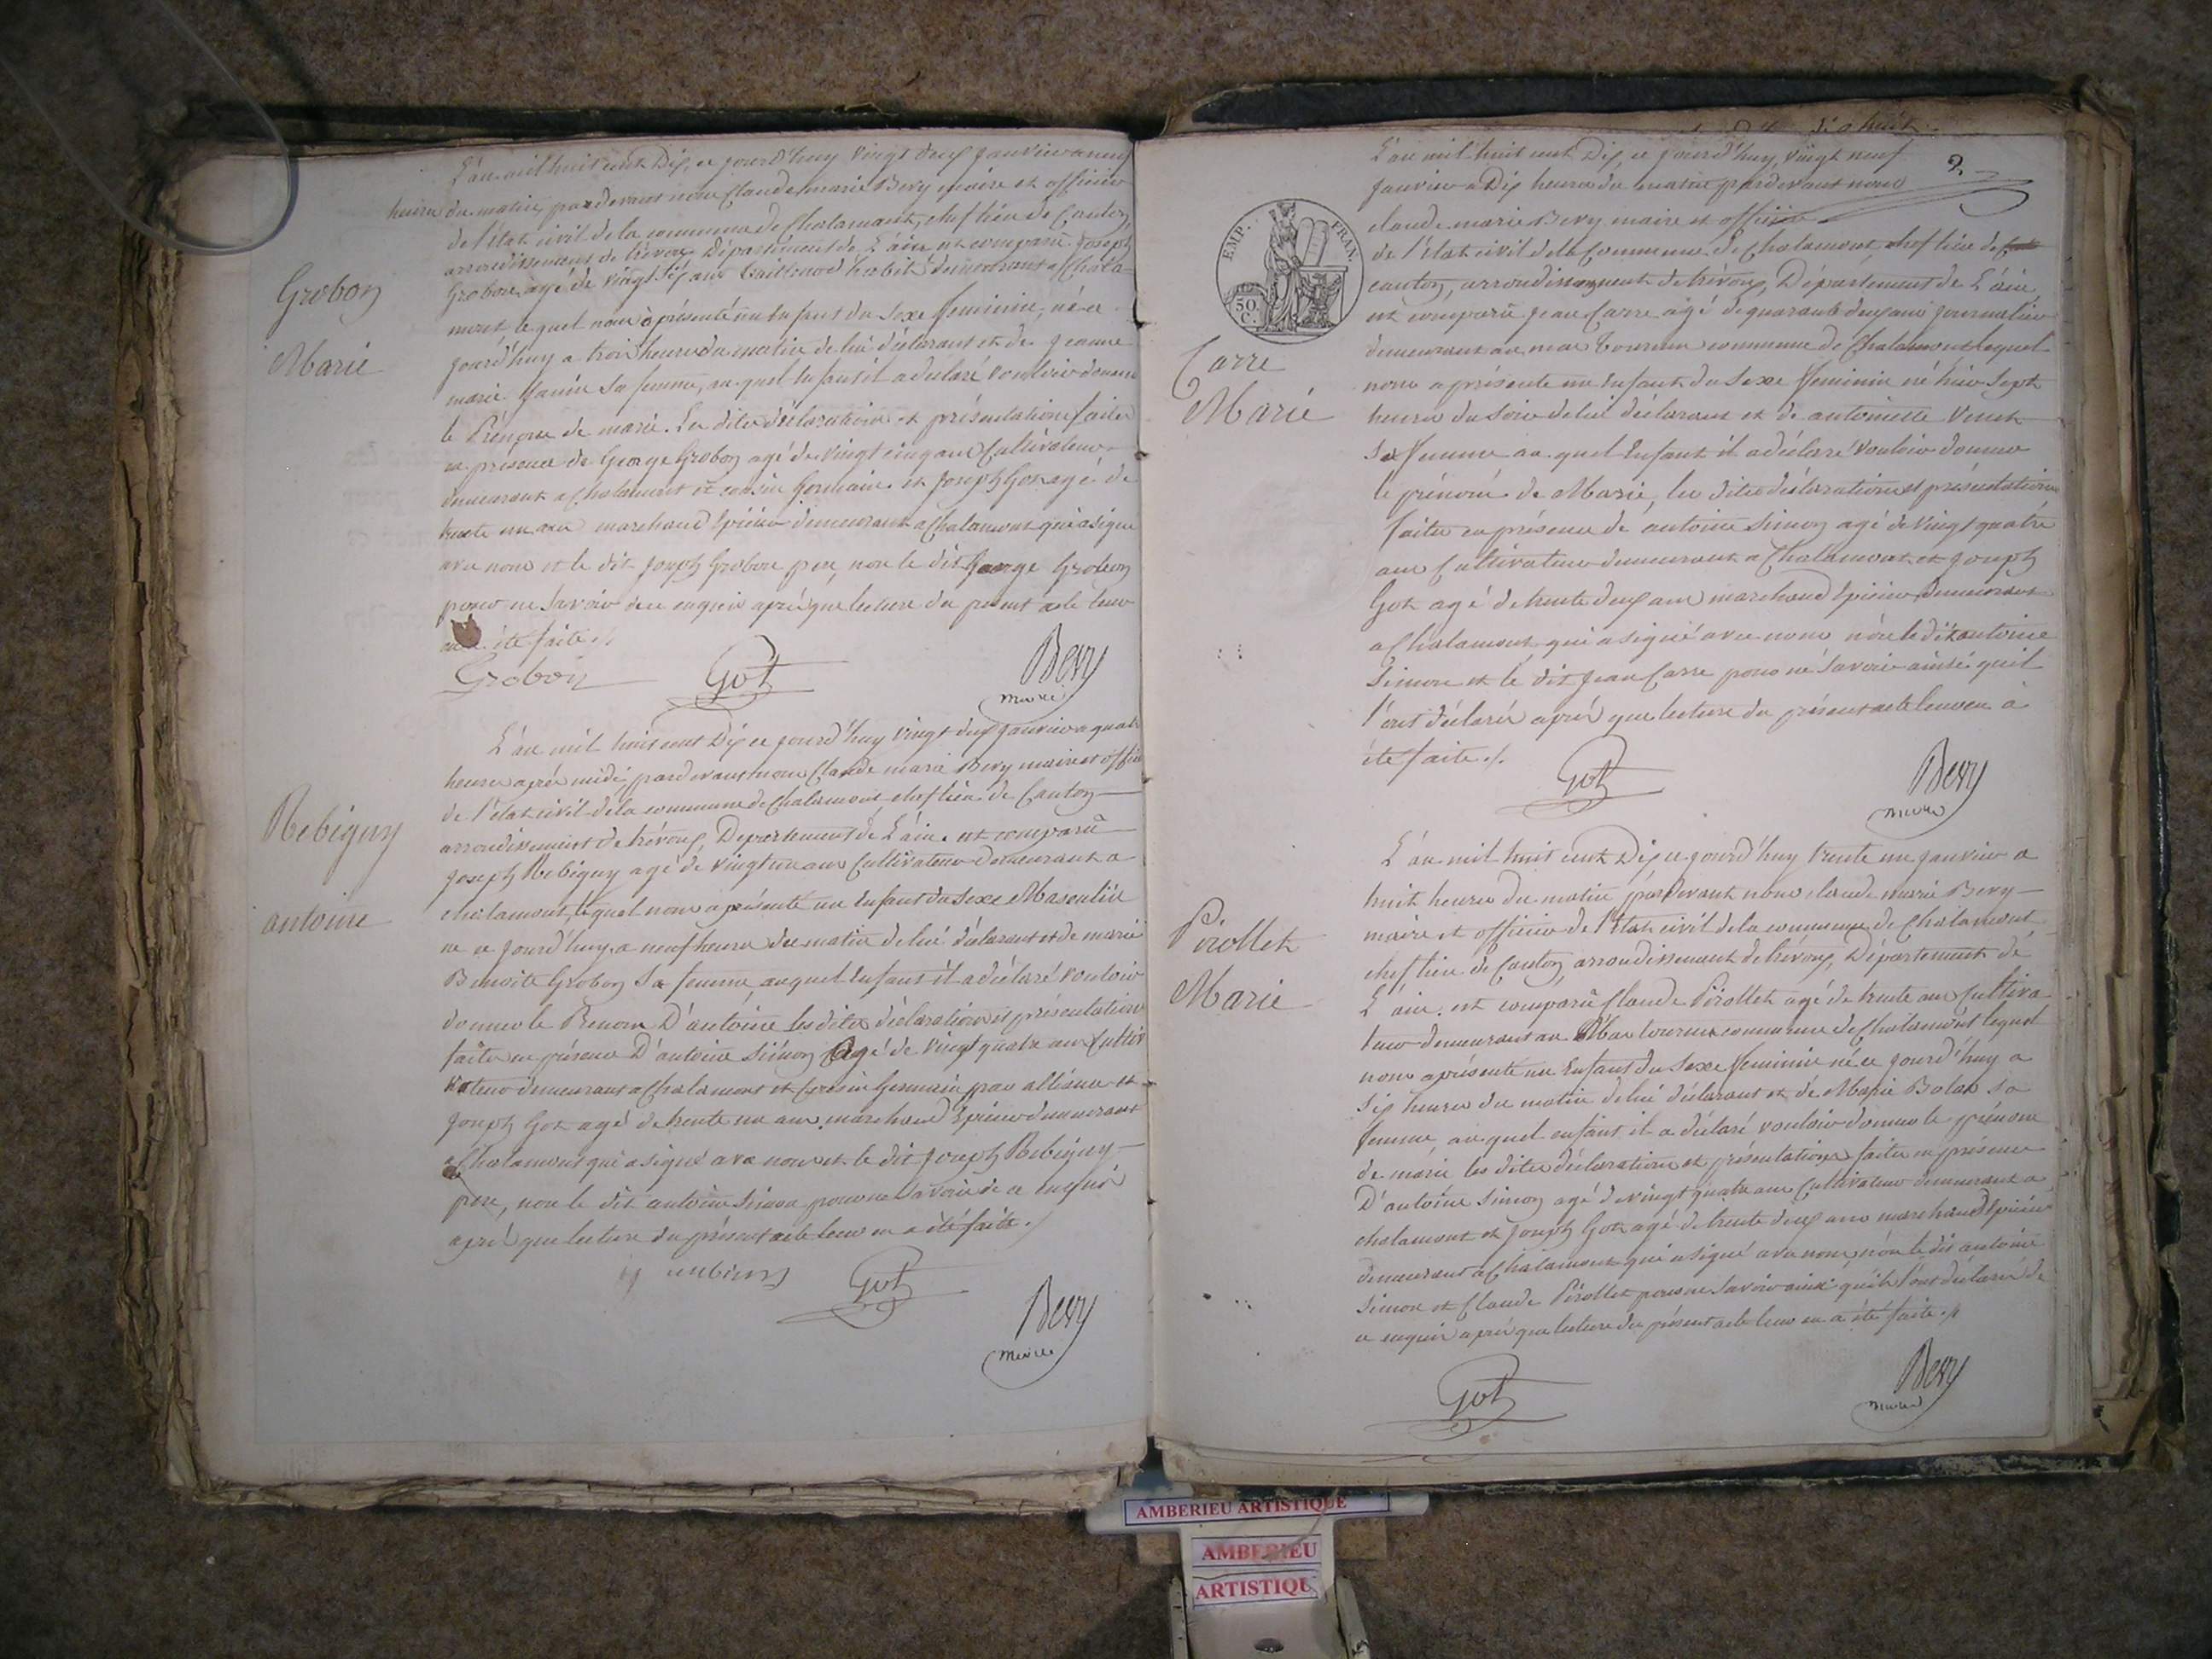 Grobon
Marie
L'an mil huit cent Dix, ce jourd'huy vingt deux janvier a neuf
heures du matin, pardevant nous Claude marie Bevy maire et officier
de l'état civil de la commune de Chalamont, chef lieu de Canton
arrondissement de trévoux Département de L'ain est comparû Joseph
Grobon agé de vingt six ans tailleur d'habit demeurant a Chala-
mont lequel nous à présenté un enfant du Sexe feminin, né ce
jourd'huy a trois heures du matin de lui déclarant et de jeanne
marie Janin Sa femme, au quel Enfant il a déclaré vouloir donner
le Prénom de marie. Les dites déclaration et présentation faites
en présence de George Grobon agé de vingt cinq ans Cultivateur
demeurant a Chalamont et cousin Germain et Joseph Got agé de
trente un ans marchand Epicier demeurant a Chalamont qui a signé
avec nous et le dit Joseph Grobon pere, non le dit George Grobon
pour ne Savoir de ce enquis après que lecture du present acte leur
en a été faite ./.
Grobon Got Bevy
maire
Rebigny
antoine
L'an mil huit cent Dix ce jourd'huy vingt deux janvier a quatre
heures après midi pardevant nous Claude marie Bevy maire et offi
de l'état civil de la commune de Chalamont chef lieu de Canton
arrondissement de trévoux, Departement de L'ain. est comparû
joseph Rebigny agé de vingt un ans Cultivateur demeurant a
chalamont, lequel nous a présenté un enfant du Sexe Masculin
né ce jourd'huy a neuf heures du matin de lui déclarant et de marie
Benoite Grobon Sa femme, auquel Enfant il a déclaré vouloir
donner le Prenom D'antoine les dites déclaration et présentation
faites en présence D'antoine Simon agé de vingt quatre ans Cultiv
vateur demeurant a Chalamont et Cousin Germain par alliance et
Joseph Got agé de trente un ans marchand Epicier demeurant
a Chalamont qui a signé avec nous et le dit Joseph Rebigny
pere, non le dit antoine Simon pour ne Savoir de ce enquis
après que lecture du présent acte leur en a été faite ./
Got Bevy
maire
2
L'an mil huit cent Dix, ce jourd'huy, vingt neuf
janvier a Dix heures du matin pardevant nous
claude marie Bevy maire et officier
EMP. FRAN.
50
C.
de l'état civil de la Commune de Chalamont, chef lieu de
canton, arrondissement de trévoux, Département de L'ain
est comparû jean Carre agé de quarante deux ans journalier
demeurant au mas tournu commune de Chalamont lequel
Carre
Marie
nous a présenté un Enfant du Sexe feminin né hier Sept
heures du Soir de lui déclarant et de antoinette
Sa femme au quel Enfant il a déclaré vouloir donner
le prénom de Marie, les dites déclaration et présentation
faites en présence de antoine Simon agé de vingt quatre
ans Cultivateur demeurant a Chalamont et Joseph
Got agé de trente deux ans marchand Epicier demeurant
a Chalamont qui a signé avec nous non le dit antoine
Simon et le dit jean Carre pour ne Savoir ainsi qu'il
l'ont déclaré après que lecture du présent acte leur en à
été faite ./.
Got Bevy
maire
L'an mil huit cent Dix ce jourd'huy trente un janvier a
huit heures du matin pardevant nous claude marie Bevy
Pirollet
Marie
maire et officier de l'état civil de la commune de Chalamont,
chef lieu de Canton, arrondissement de trévoux, Département de
L'ain. est comparû Claude Pirollet agé de trente ans Cultiva
teur demeurant au Mas tournu commune de Chalamont lequel
nous a présenté un Enfant du Sexe feminin né ce jourd'huy a
Six heures du matin de lui déclarant et de Marie Sa
femme, au quel enfant il a déclaré vouloir donner le prénom
de marie les dites déclaration et présentation faites en présence
D'antoine Simon agé de vingt quatre ans Cultivateur demeurant a
chalamont et Joseph Got agé de trente deux ans marchand Epicier
demeurant a Chalamont qui a signé avec nous, non le dit antoine
Simon et Claude Pirollet pour ne Savoir ainsi qu'ils l'ont déclaré de
ce enquis après que lecture du présent acte leur en a été faite ./
Got Bevy
maire
AMBERIEU ARTISTIQUE
AMBERIEU
ARTISTIQU